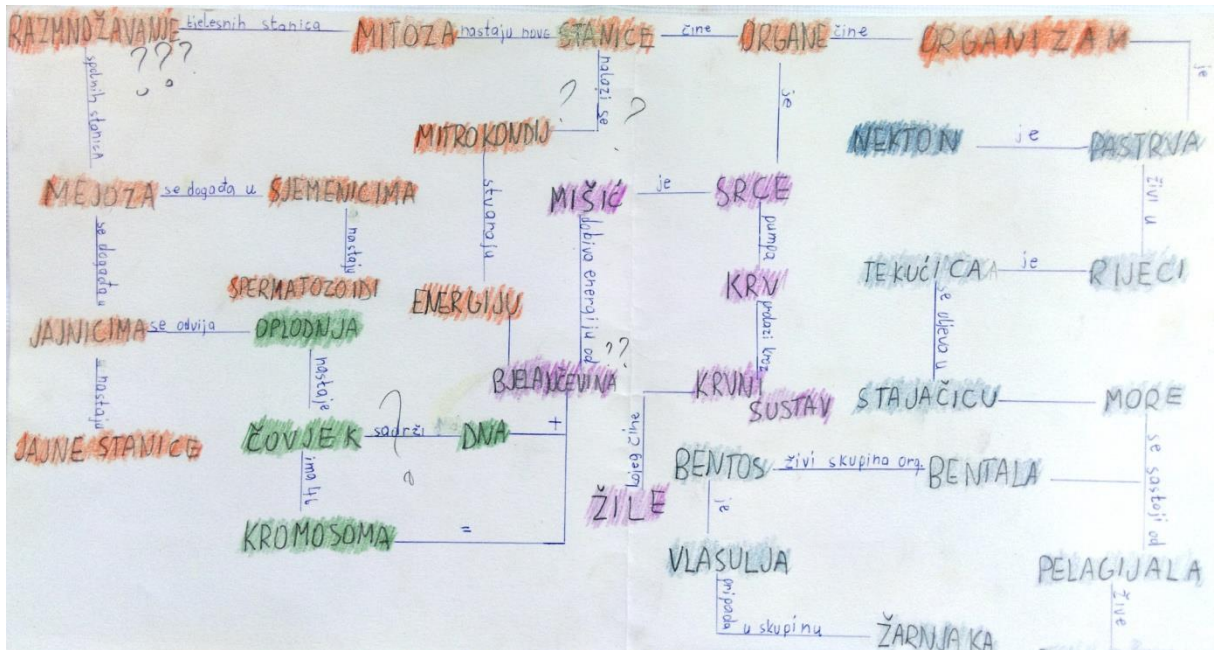 RAZMNOŽAVANJE tjelesnih stanica MITOZA nastaju nove STANICE čine ORGANE čine ORGANIZAM
???
spolnih stanica
nalazi se
?
?
je
je
MITROKONDIJ
NEKTON je PASTRVA
MEJOZA se događa u SJEMENICIMA
stvaraju
MIŠIĆ je SRCE
živi u
se događa u
nastaju
dobiva energiju od
pumpa
SPERMATOZOIDI
ENERGIJU
KRV
TEKUĆICA je RIJECI
JAJNICIMA se odvija OPLODNJA
prolazi kroz
se uljeva u
nastaju
nastaje
BJELANČEVINA
??
KRVNI
SUSTAV
STAJAČICU MORE
JAJNE STANICE
ČOVJEK sadrži DNA +
?
kojeg čine
ima 46
BENTOS živi skupina org. BENTALA
se sastoji od
ŽILE
je
KROMOSOMA =
VLASULJA
PELAGIJALA
pripada u skupinu ŽARNJAKA
žive